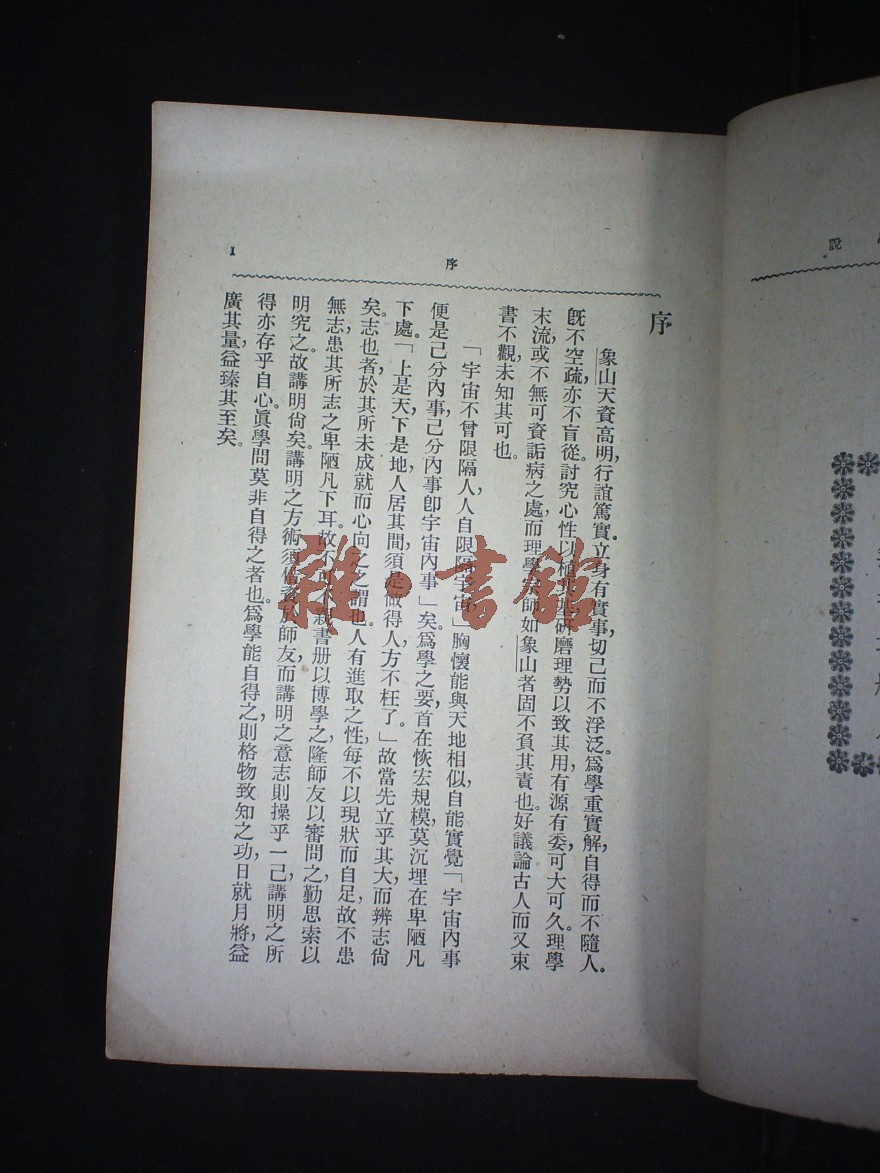 說
序
1
序
象山天資高明，行誼篤實，立身有實事，切己而不浮泛。爲學重實解，自得而不隨人。
旣不空疏，亦不盲從。討究心性以植其基，研磨理勢以致其用，有源有委，可大可久。理學
末流，或不無可資詬病之處，而理學宗師如象山者，固不負其責也。好議論古人而又束
書不觀，未知其可也。
「宇宙不曾限隔人，人自限隔宇宙」胸懷能與天地相似，自能實覺「宇宙內事
便是己分內事，己分內事卽宇宙內事」矣。爲學之要，首在恢宏規模，莫沉埋在卑陋凡
下處。「上是天，下是地，人居其間，須是做得人，方不枉了。」故當先立乎其大，而辨志尙
矣。志也者，於其所未成就而心向之之謂也。人有進取之性，每不以現狀而自足，故不患
無志，患其所志之卑陋凡下耳。故不可不親書册以博學之，隆師友以審問之，勤思索以
明究之。故講明尙矣。講明之方術，須借資於師友，而講明之意志，則操乎一己，講明之所
得，亦存乎自心。眞學問莫非自得之者也。爲學能自得之，則格物致知之功，日就月將，益
廣其量，益臻其至矣。
雜·書館